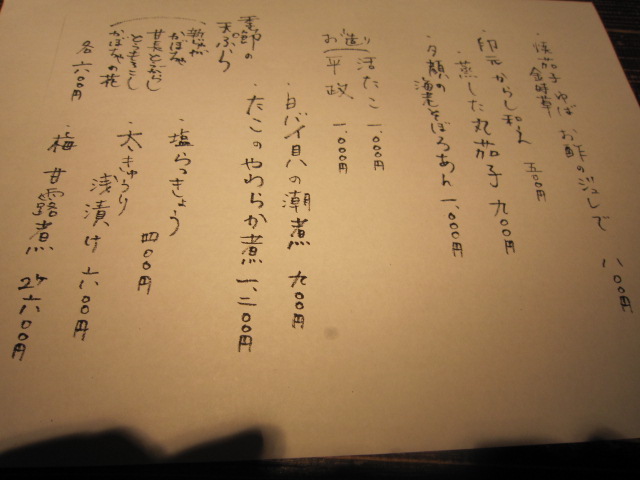 お酢の浸しで 八〇〇円
金時草
印元からし和え 五〇〇円
・蒸した丸茄子 九〇〇円
・夕顔の
海老そぼろあん 一、〇〇〇円
お造り
活たこ 一、〇〇〇円
平政 一、〇〇〇円
・白バイ貝の潮煮 九〇〇円
・たこのやわらか煮 一、二〇〇円
季節の
天ぷら
かぼちゃ
甘長とうがらし
とうもろこし
かぼちゃの花
各 六〇〇円
・塩らっきょう 四〇〇円
・太きゅうり
浅漬け 六〇〇円
・梅 甘露煮 2ヶ 六〇〇円